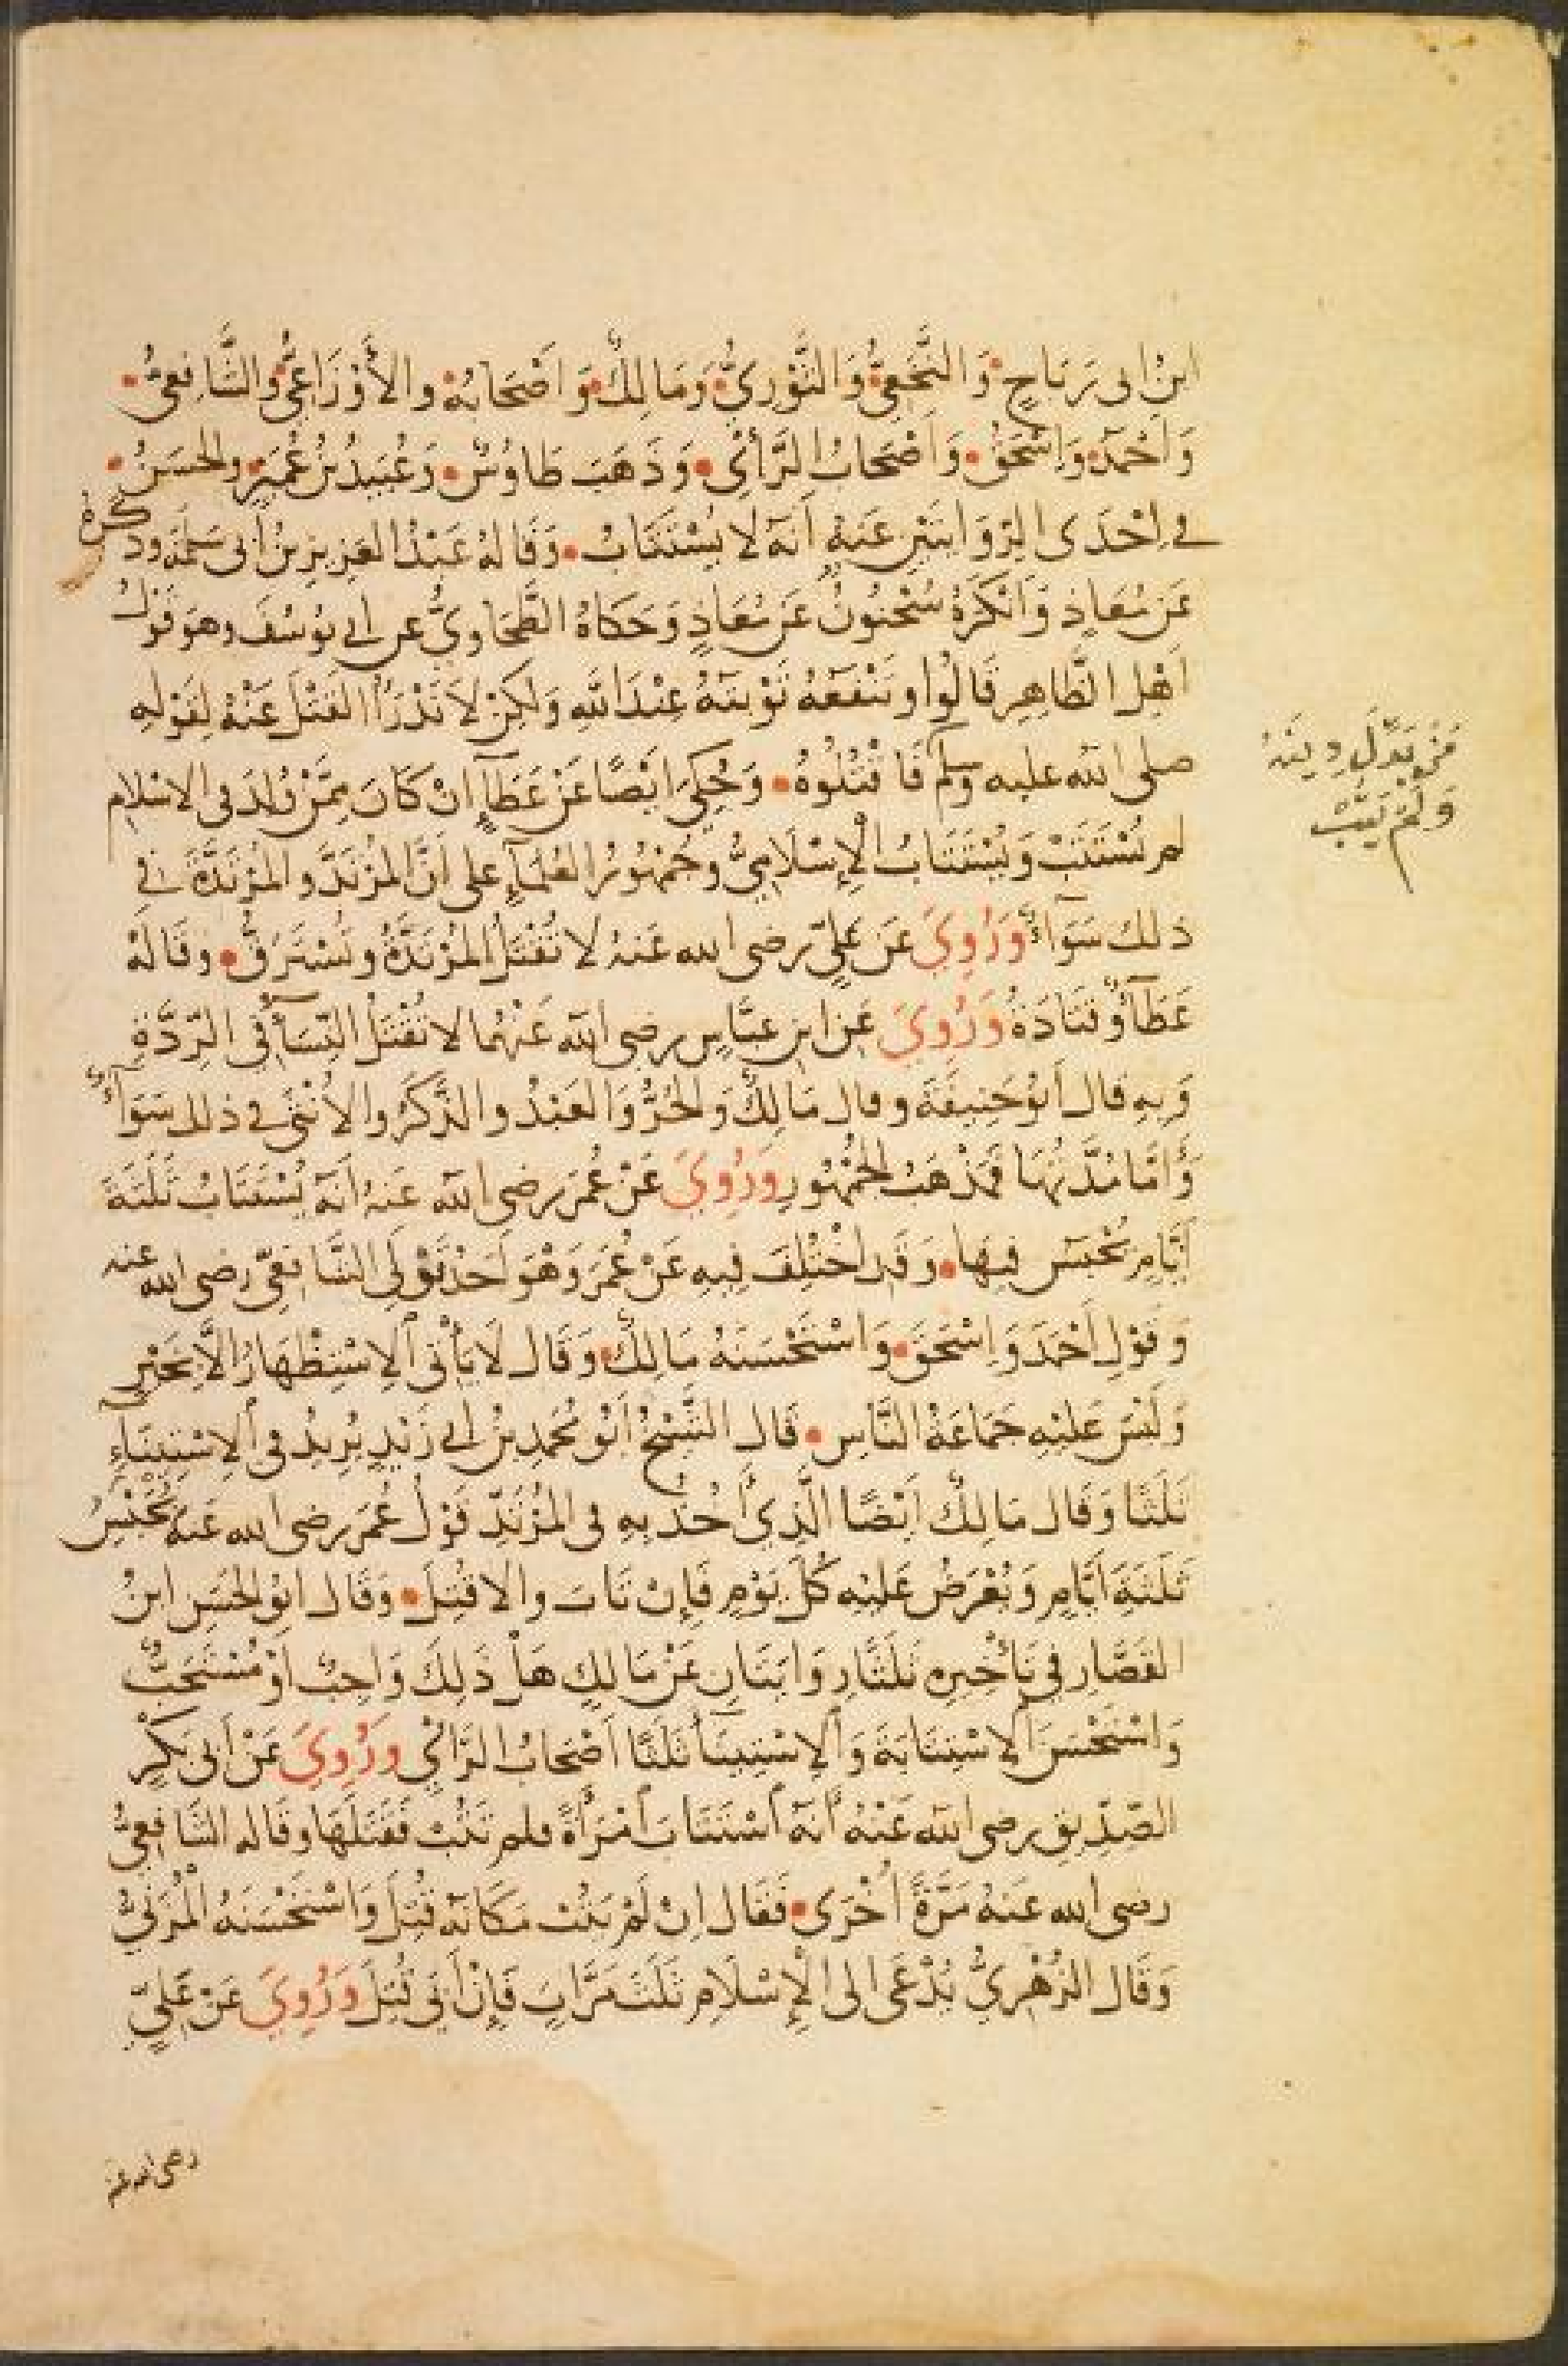 ابنُ ابى رَبَاحٍ وَالنَّخَعِيُّ وَالثَّوْرِيُّ وَمَالِكٌ وَاَصْحَابُهُ والأَوْزَاعِيُّ والشَّافِعِيُّ
وَاَحْمَدُ وَاِسْحَقُ وَاَصْحَابُ الرَّأْيِ وَذَهَبَ طَاوُسٌ وَعُبَيْدُ بْنُ عُمَيْرٍ والحَسَنُ
فى اِحْدَى الرِّوَايَتَيْنِ عَنْهُ اَنَّهُ لَا يُسْتَتَابُ وَقَالَهُ عَبْدُ العَزِيزِ بنُ أَبى سَلَمَةَ وذكرهُ
عَنْ مُعَاذٍ وَاَنْكَرَهُ سُحْنُونٌ عَنْ مُعَاذٍ وَحَكَاهُ الطَّحَاوِيُّ عن أبى يُوسُفَ وهوَ قَوْلُ
اَهْلِ الظَّاهِرِ قَالُوا وتَنْفَعُهُ تَوْبَتُهُ عِنْدَ اللهِ وَلَكِنْ لَا تَدْرَأُ القَتْلَ عَنْهُ لِقَوْلِهِ
صلى الله عليه وسلم فَاقْتُلُوهُ وَحُكِيَ اَيْضًا عَنْ عَطَآءٍ اِنْ كَانَ مِمَّنْ وُلِدَ فى الاسْلامِ
مَنْ بَدَّلَ دِينَهُ
وَلَمْ يَتُبْ
لم يُسْتَتَبْ وَيُسْتَتَابُ الْإِسْلَامِيُّ وَجُمْهُورُ العُلَمَآءِ على اَنَّ المُرْتَدَّ والمُرْتَدَّةَ فى
ذلك سَوَآءٌ وَرُوِيَ عَنْ عَلِيٍّ رضى الله عَنهُ لا تُقْتَلُ المُرْتَدَّةُ وتُسْتَرَقُّ وقَالَهُ
عَطَآءٌ وَقَتَادَةُ وَرُوِيَ عَن ابنِ عبَّاسٍ رضى الله عَنْهُما لا تُقْتَلُ النِّسَآءُ فى الرِّدَّةِ
وَبِهِ قال اَبُو حَنِيفَةَ وقال مَالِكٌ وَالحُرُّ وَالعَبْدُ والذَّكَرُ والأُنْثَى فى ذلك سَوَآءٌ
وَاَمَّا مُدَّتُهَا فَمَذْهَبُ الجُمْهُورِ وَرُوِيَ عَنْ عُمَرَ رضى الله عَنهُ اَنَّهُ يُسْتَتَابُ ثَلَثَةَ
اَيَّامٍ يُحْبَسُ فِيهَا وَقَد اخْتُلِفَ فِيهِ عَنْ عُمَرَ وَهْوَ اَحَدُ قَوْلَىِ الشَّافِعِيِّ رضى الله عنه
وَقَوْلِ اَحْمَدَ وَاِسْحَقَ وَاسْتَحْسَنَهُ مَالِكٌ وَقَال لَا يَأْتى الِاسْتِظْهَارُ اِلَّا بِخَيْرٍ
وَلَيْسَ عَلَيْهِ جَمَاعَةُ النَّاسِ قَال الشَّيْخُ اَبُو مُحَمدِ بْنُ أبى زَيْدٍ يُرِيدُ فى الِاسْتِينَآءِ
ثَلَثًا وَقَال مَالِكٌ اَيْضًا الَّذِي أَخُذُ بِهِ فى المُرْتَدِّ قَوْلُ عُمَرَ رضى الله عَنهُ يُحْبَسُ
ثَلَثَةَ اَيَّامٍ وَيُعْرَضُ عَلَيْهِ كُلَّ يَوْمٍ فَإِنْ تَابَ والا قُتِلَ وَقَال ابُو الحَسَنِ ابنُ
القَصَّارِ فى تَأْخِيرِهِ ثَلَثًا رِوَايَتَانِ عَنْ مَالِكٍ هَلْ ذَلِكَ وَاجِبٌ اَوْ مُسْتَحَبٌّ
وَاسْتَحْسَنَ الِاسْتِتَابَةَ وَالِاسْتِينَآءَ ثَلَثًا اَصْحَابُ الرَّأْيِ وَرُوِيَ عَنْ اَبى بَكْرٍ
الصِّدِّيقِ رضى الله عَنْهُ اَنَّهُ اسْتَتَابَ امْرَأَةً فلم تَتُبْ فَقَتَلَهَا وقَاله الشَّافِعِيُّ
رضى الله عَنهُ مَرَّةً اُخْرَى فَقَال اِنْ لَمْ يَتُبْ مَكَانَهُ قُتِلَ وَاسْتَحْسَنَهُ الْمُزَنِيُّ
وَقَال الزُّهْرِيُّ يُدْعَى الى الْإِسْلَامِ ثَلَثَ مَرَّاتٍ فَإِنْ أَبَى قُتِلَ وَرُوِيَ عَنْ عَلِيٍّ
رضى الله عنه